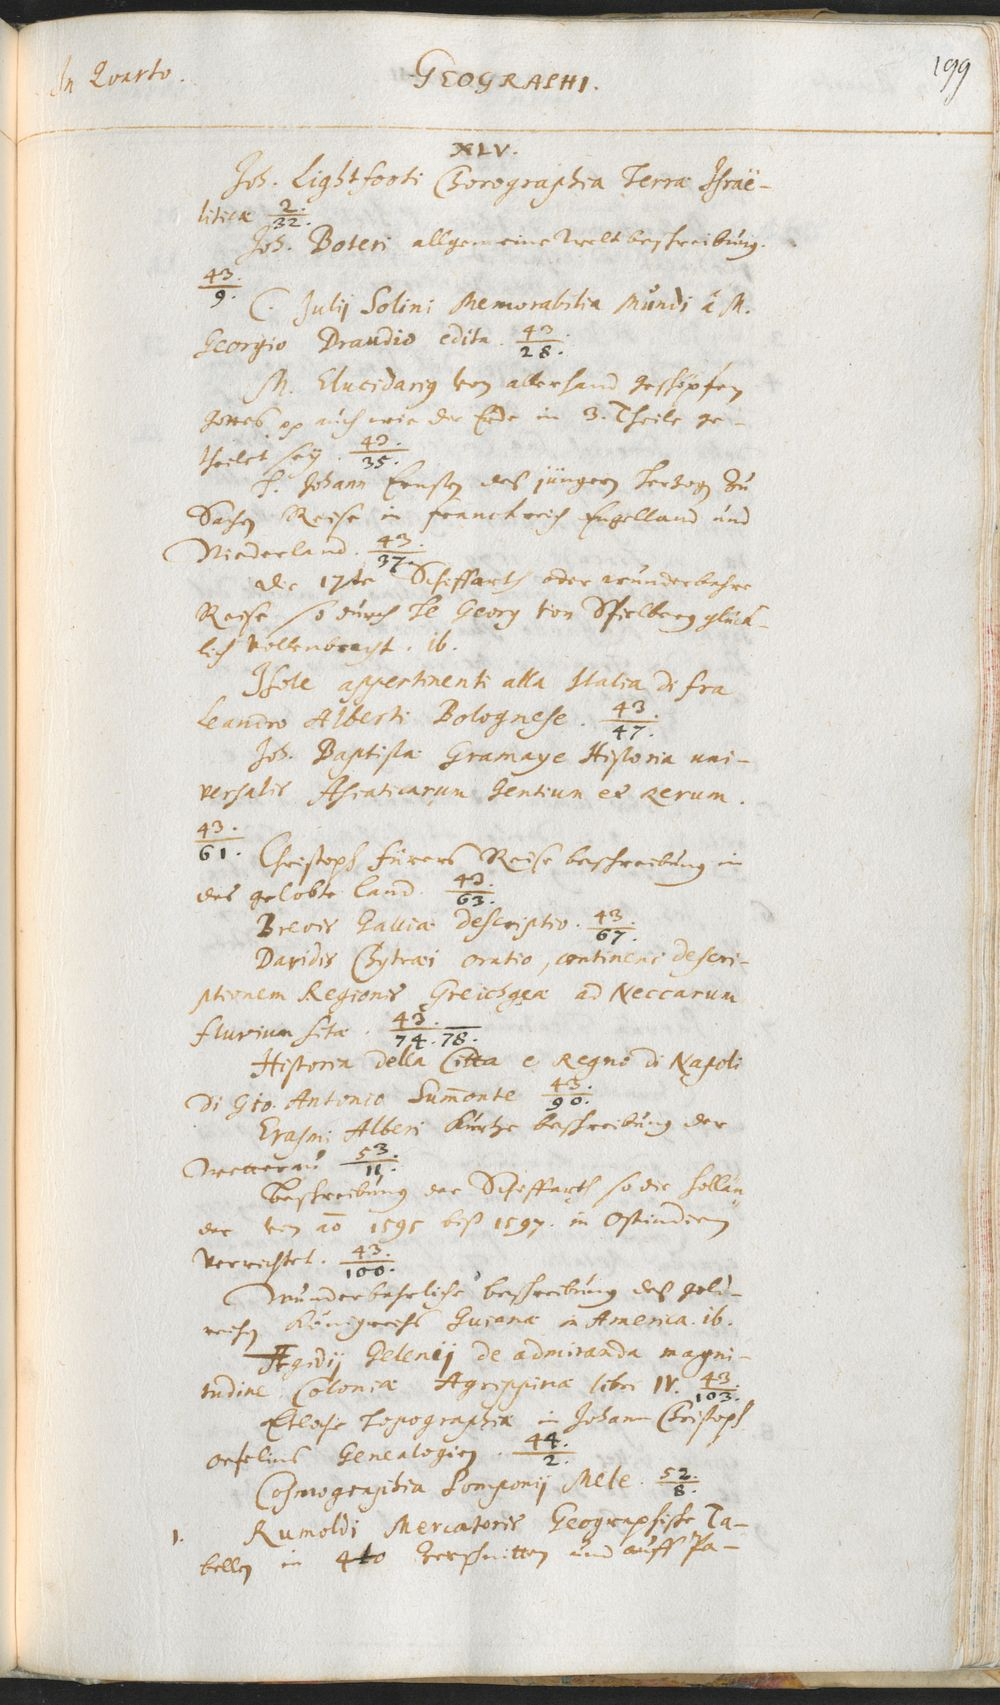 In Quarto.
GEOGRAPHI.
199
XLV.
Joh. Lightfooti Chorographia Terræ Israë-
liticæ 2./32.
Joh. Boteri allgemeine Weltbeschreibung.
43./9.
C. Julij Solini Memorabilia Mundi â M.
Georgio Draudio edita. 43./28.
M. Elucidarij von allerhand geschöpfen
gottes auch wie der Erde in 3. Theile ge-
theilet sey. 43./35.
H. Johann Ernsten des jüngern Herzog zu
Sachsen Reise in Franckreich Engelland und
Niederland. 43./37.
die 17te Schiffarth oder wunderbahre
Reise so durch H Georg von Spielberg glück-
lich vollenbracht. ib.
Isole appertinenti alla Italia di fra
Leandro Alberti Bolognese. 43./47.
Joh. Baptistæ Gramaye Historia uni-
versalis Asiaticarum Gentium et rerum.
43./61.
Christoph Fürers Reise beschreibung in
das gelobte Land. 43./63.
Brevis Galliæ descriptio. 43./67.
Davidis Chytræi oratio, continens descri-
ptionem Regionis Greichgeæ ad Neccarum
fluvium sitæ. 43./74.78.
Historia della Citta e Regno di Napoli
di Gio. Antonio Sum̄onte 43./90.
Erasmi Alberi kurze beschreibung der
Wetterau 53./11.
Beschreibung der Schiffarth so die Hollän
der von aō 1595 biß 1597. in Ostindien
verrichtet. 43./100.
Wunderbahrliche beschreibung deß gold-
reichen Königreichs Guianæ in America. ib.
Ægidij Gelenij de admiranda magni-
tudine Coloniæ Agrippinæ libri IV. 43./103.
Etliche Topographia in Johann Christoph
Genealogien. 44./2.
Cosmographia Pomponij Mele. 52./8.
1. Rumoldi Mercatoris Geographische Ta-
bellen in 4to zerschnitten und auff Pa-